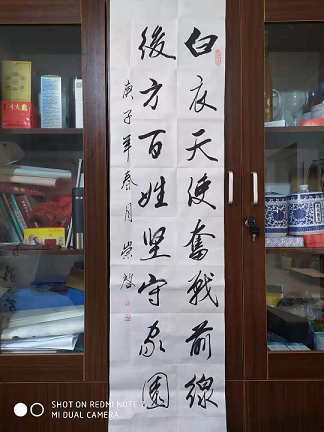 白衣天使奮戰前線
後方百姓坚守家園
庚子年春月 崇啓
SHOT ON REDMI NOTE 7
MI DUAL CAMERA